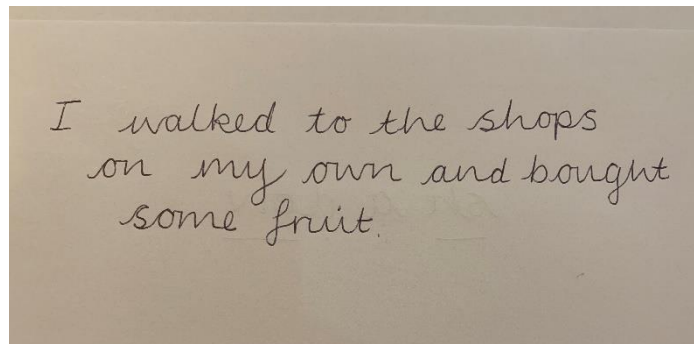 I walked to the shops
on my own and bought
some fruit.